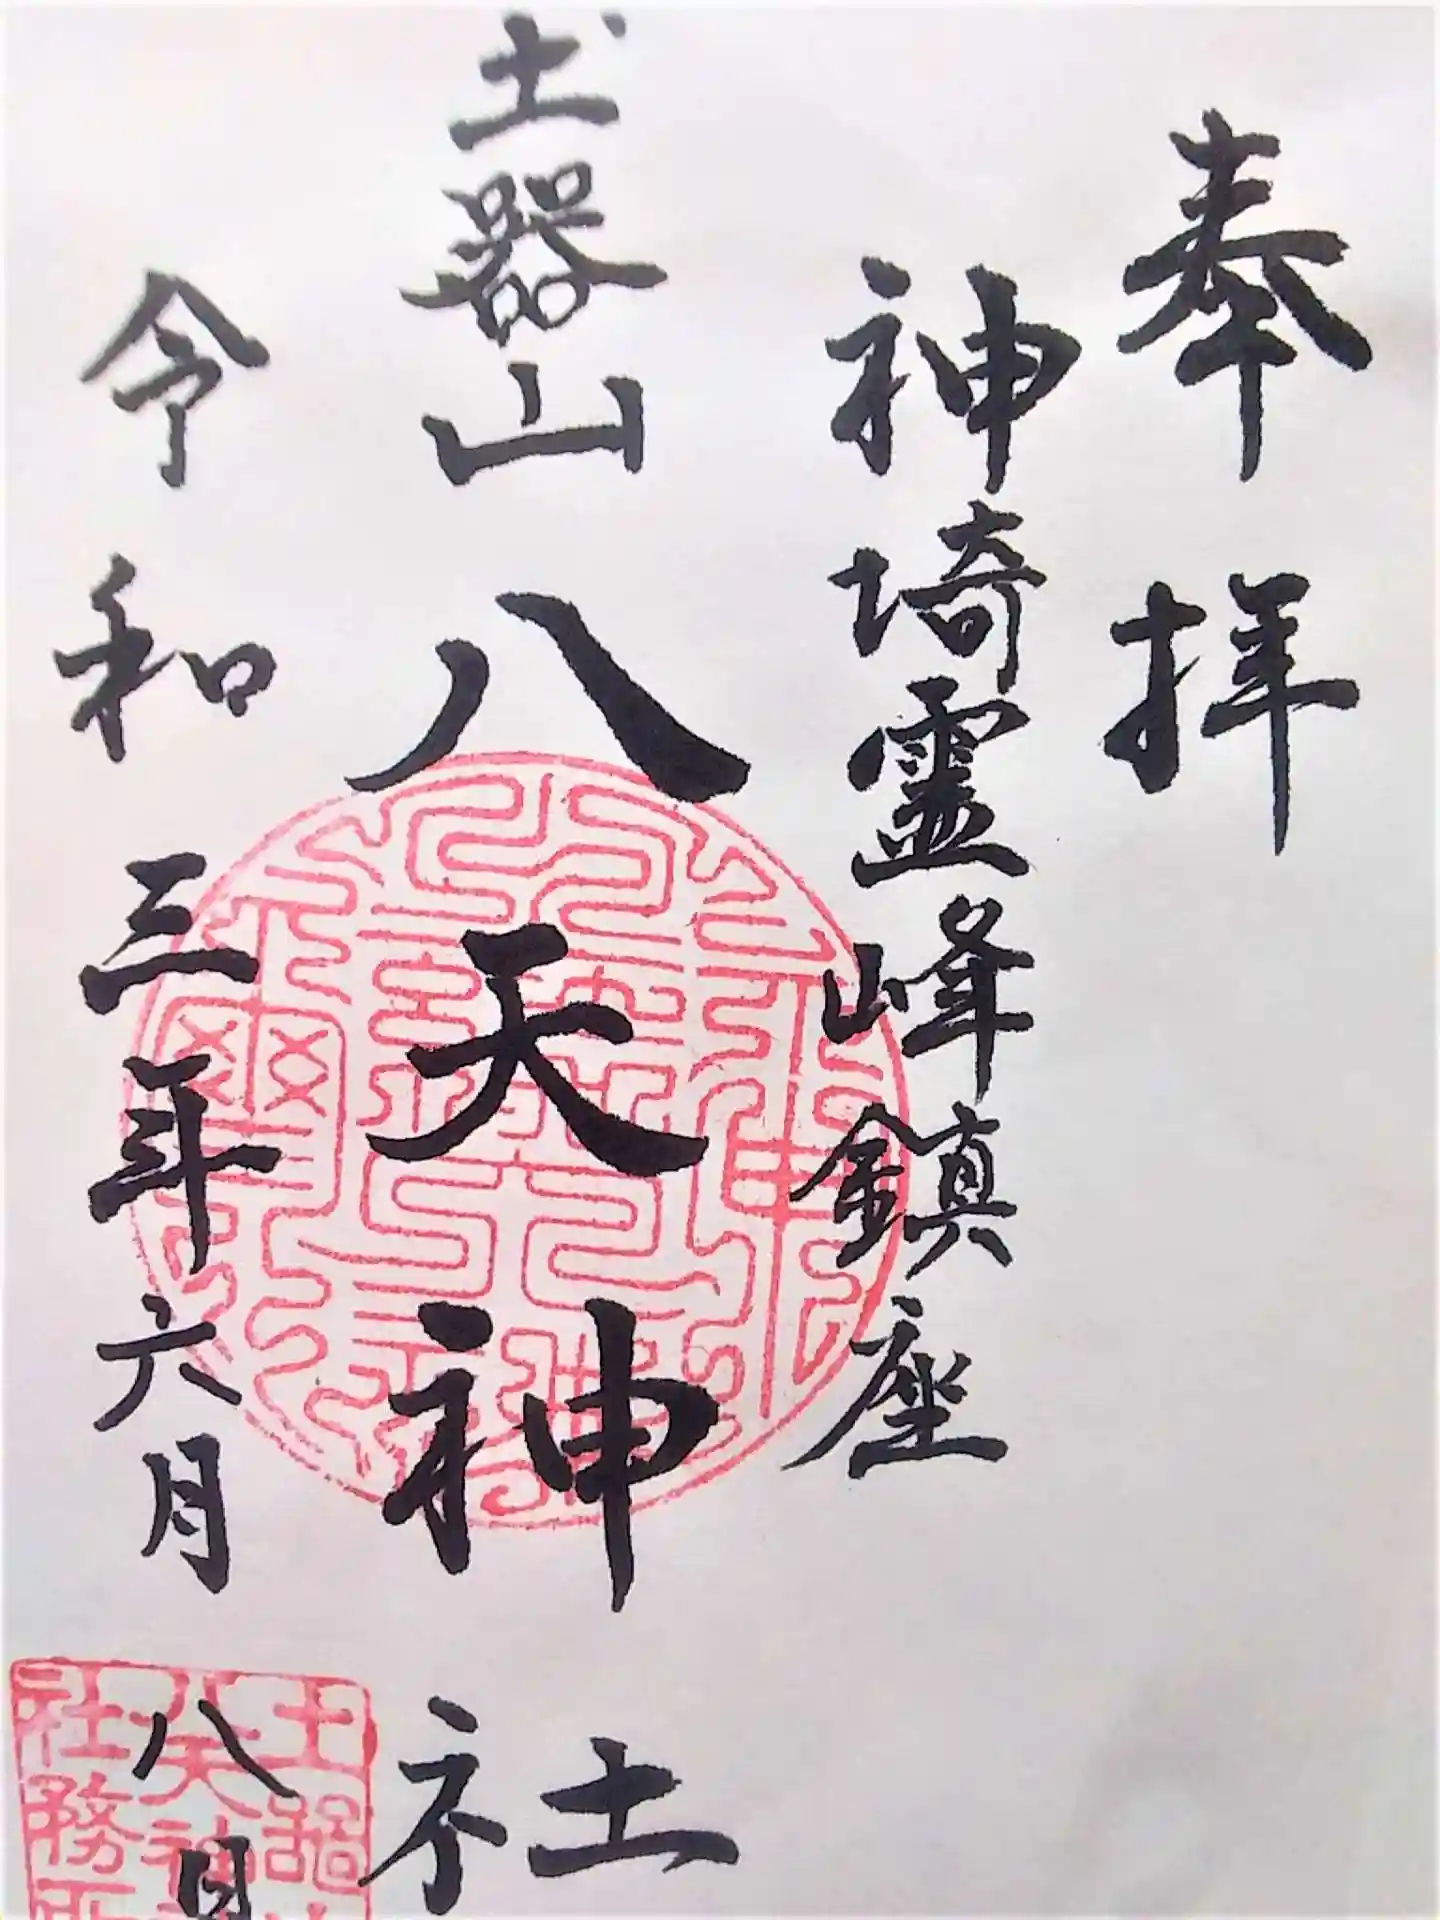 奉拝
神埼霊峰鎮座
土器山八天神社
令和三年六月八日
土器山
八天神
社務所